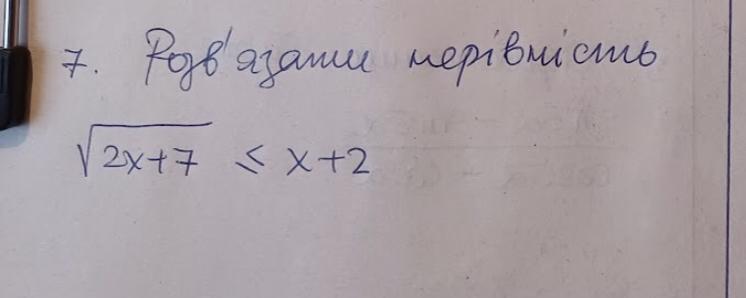 7. Розв'язати нерівність
√2x+7 ≤ x+2